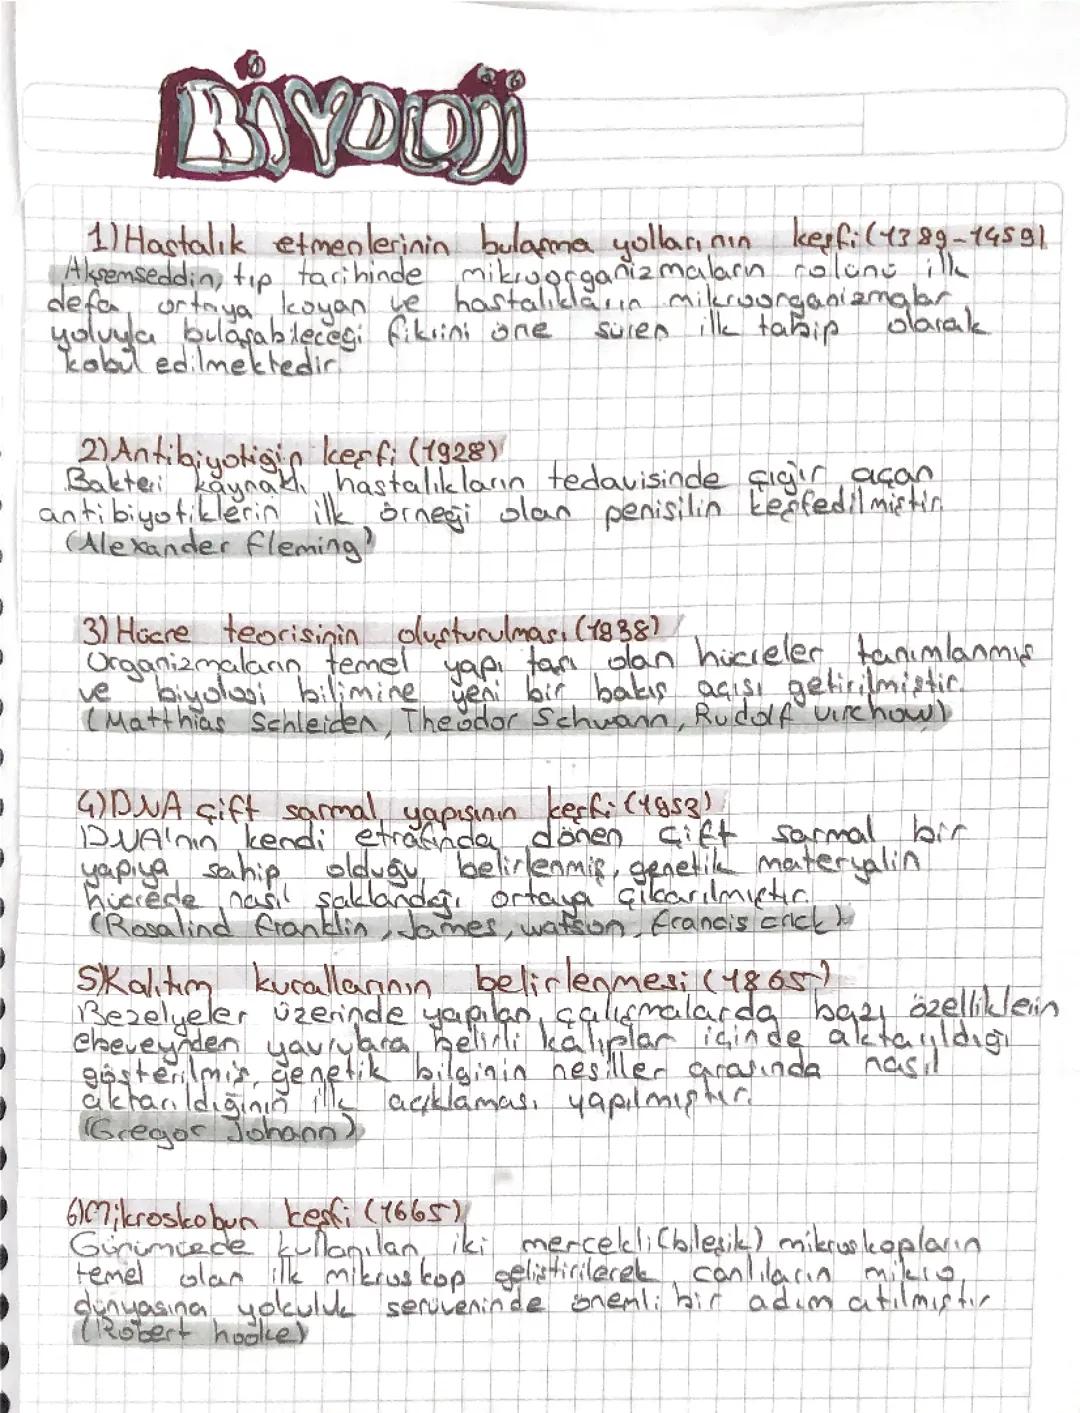 BİYOLOJİ
1) Hastalık etmenlerinin bulaşma yollarının keşfi (1389-1459)
Akşemseddin, tıp tarihinde mikroorganizmaların rolünü ilk
defa ortaya koyan ve hastalıkların mikroorganizmalar
yoluyla bulaşabileceği fikrini öne süren ilk tabip olarak
kabul edilmektedir.
2) Antibiyotiğin keşfi (1928)
Bakteri kaynaklı hastalıkların tedavisinde çığır açan
antibiyotiklerin ilk örneği olan penisilin keşfedilmiştir.
(Alexander fleming)
3) Hücre teorisinin oluşturulması (1838)
Organizmaların temel yapı taşı olan hücreler tanımlanmış
ve biyoloji bilimine yeni bir bakış açısı getirilmiştir.
(Matthias Schleiden, Theodor Schwann, Rudolf virchow)
4) DNA çift sarmal yapısının keşfi (1953)
DNA'nın kendi etrafında dönen çift sarmal bir
yapıya sahip olduğu belirlenmiş, genetik materyalin
hücrede nasıl saklandığı ortaya çıkarılmıştır.
(Rosalind franklin, James, watson, francis crick)
5) Kalıtım kurallarının belirlenmesi (1865)
Bezelyeler üzerinde yapılan çalışmalarda bazı özelliklerin
ebeveynden yavrulara belirli kalıplar içinde aktarıldığı
gösterilmiş, genetik bilginin nesiller arasında nasıl
aktarıldığının ilk açıklaması yapılmıştır.
(Gregor Johann)
6) Mikroskobun keşfi (1665)
Günümüzde kullanılan iki mercekli (bileşik) mikroskopların
temel olan ilk mikroskop geliştirilerek canlıların mikro
dünyasına yolculuk serüveninde önemli bir adım atılmıştır
(Robert hooke)